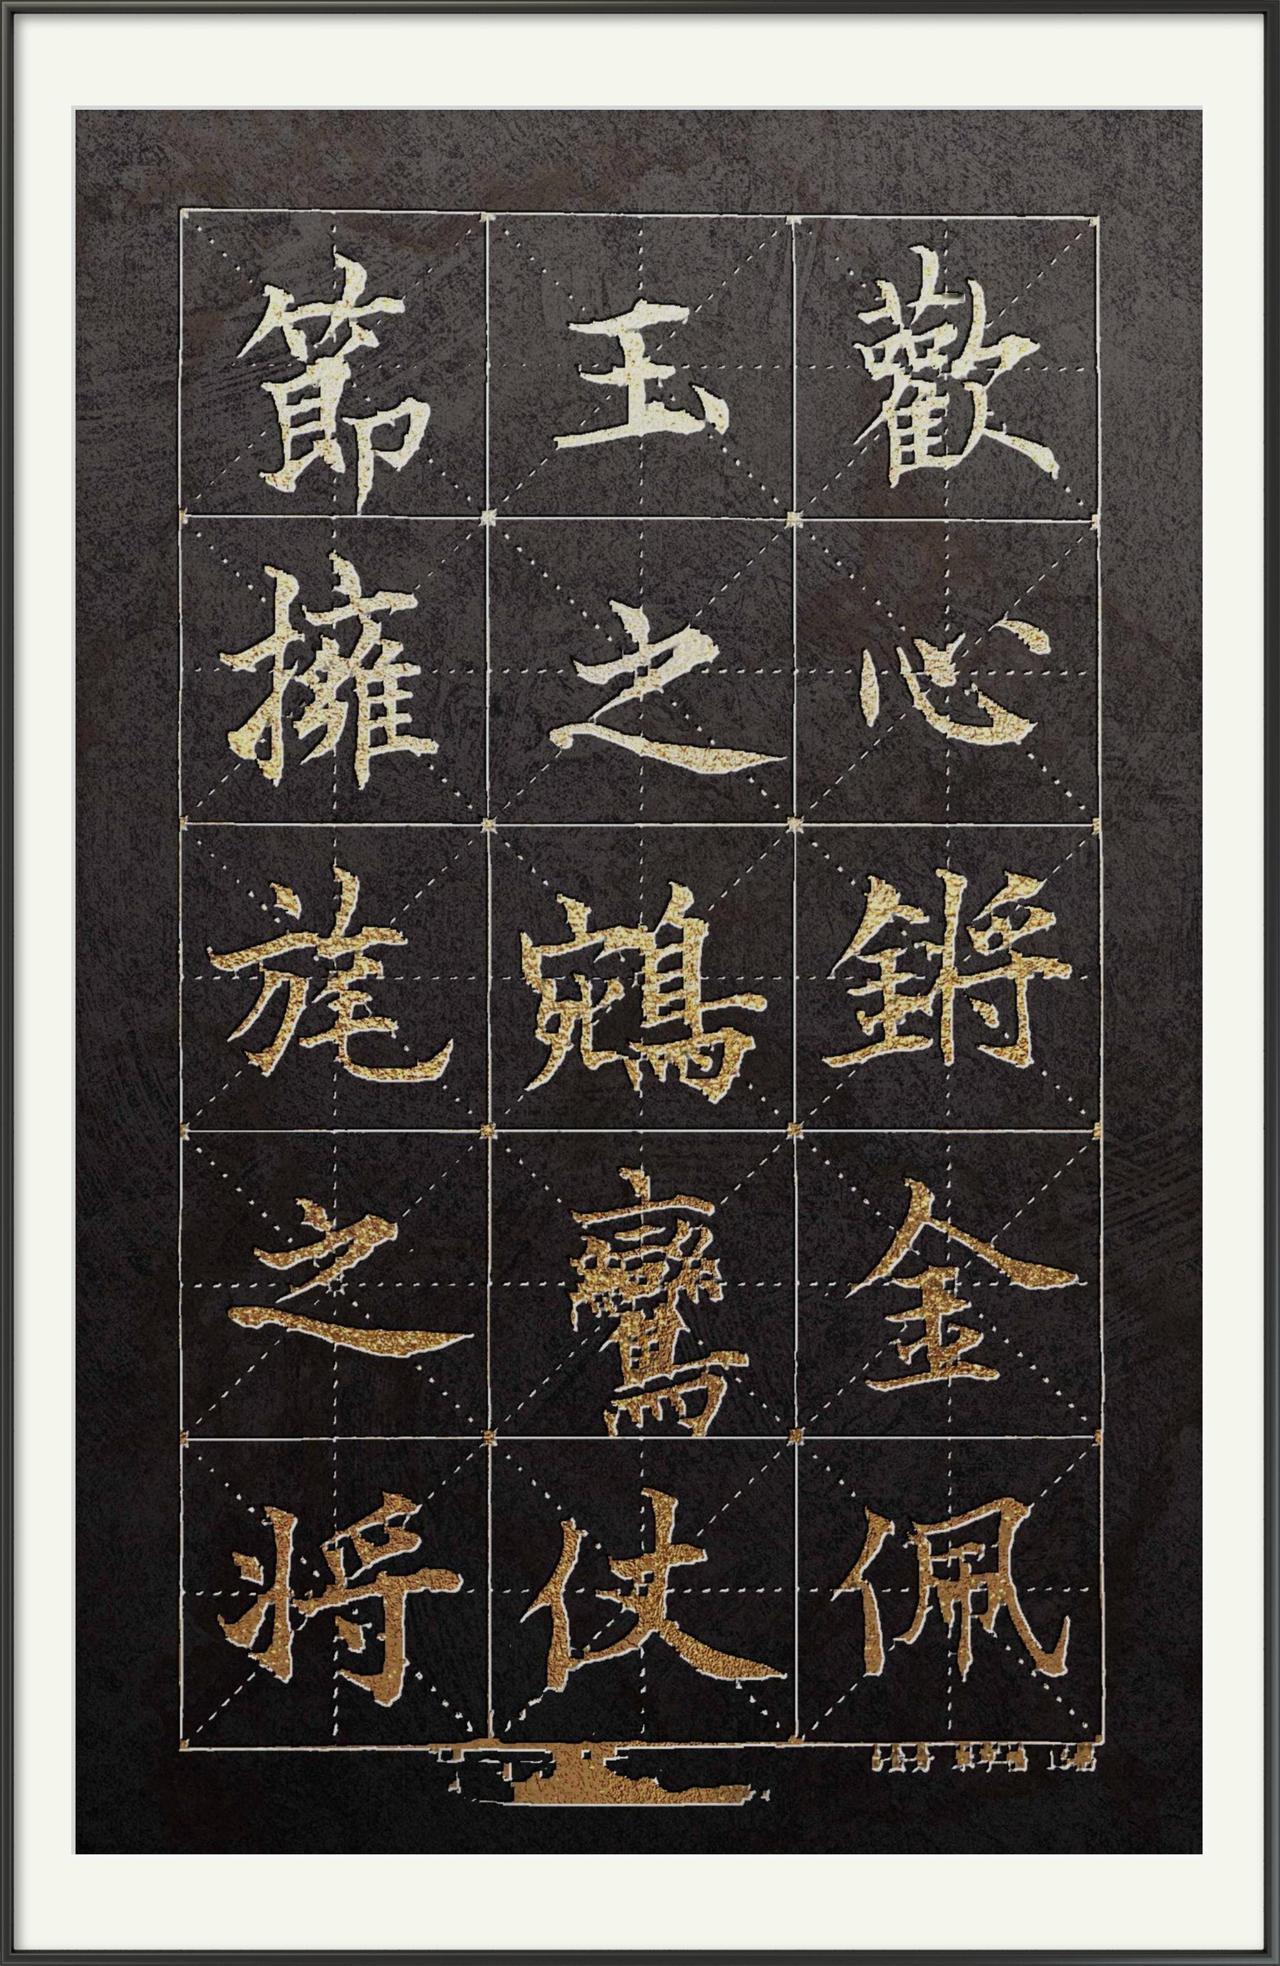 歡心鏘金佩
玉之鵷鸞仗
節擁旄之將